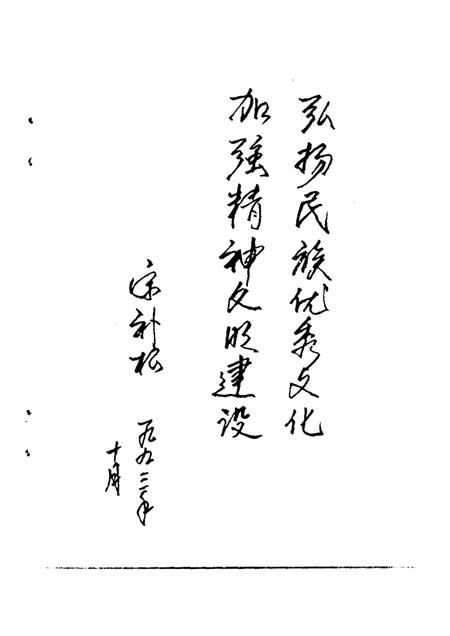 弘扬民族优秀文化
加强精神文明建设
一九九三年
十月